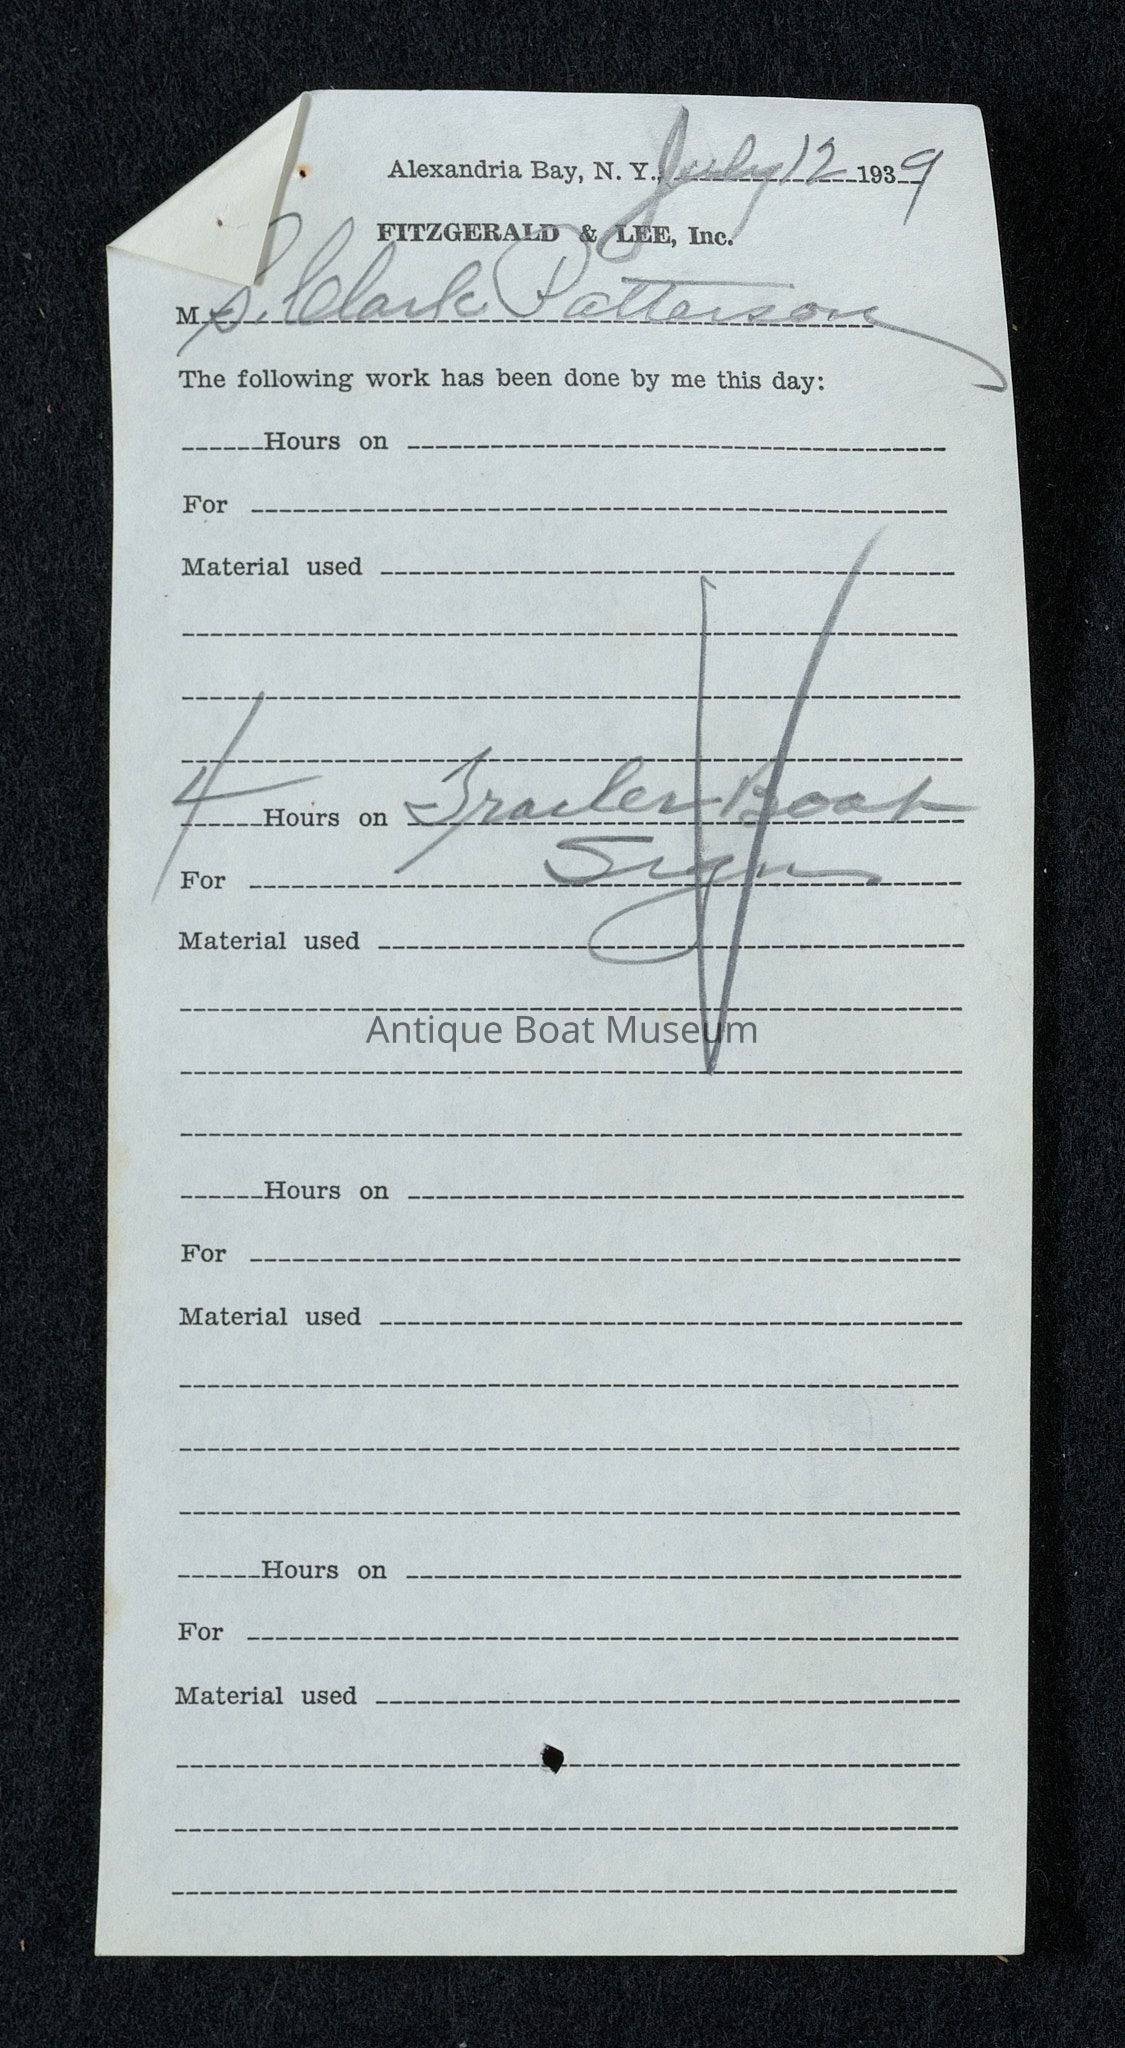 Alexandria Bay, N. Y., July 12 1939
FITZGERALD & LEE, Inc.
M S. Clark Patterson
The following work has been done by me this day:
Hours on
For
Material used
4 Hours on Trailer Boat
For Sign
Material used
Antique Boat Museum
Hours on
For
Material used
Hours on
For
Material used